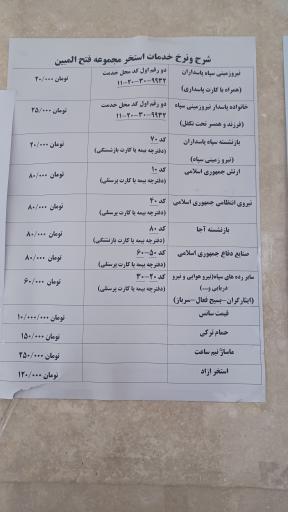 شرح و نرخ خدمات استخر مجموعه فتح المبین
نیروزمینی سپاه پاسداران
(همراه با کارت پاسداری)
دو رقم اول کد محل خدمت
۱۱-۲۰-۳۰-۹۹۳۲
۲۰/۰۰۰ تومان
خانواده پاسدار نیروزمینی سپاه
(فرزند و همسر تحت تکفل)
دو رقم اول کد محل خدمت
۱۱-۲۰-۳۰-۹۹۳۲
۲۵/۰۰۰ تومان
بازنشسته سپاه پاسداران
(نیرو زمینی سپاه)
کد ۷۰
(دفترچه بیمه یا کارت بازنشستگی)
۲۰/۰۰۰ تومان
ارتش جمهوری اسلامی
کد ۱۰
(دفترچه بیمه یا کارت پرسنلی)
۸۰/۰۰۰ تومان
نیروی انتظامی جمهوری اسلامی
کد ۴۰
(دفترچه بیمه یا کارت پرسنلی)
۸۰/۰۰۰ تومان
بازنشسته آجا
کد ۸۰
(دفترچه بیمه یا کارت بازنشتگی)
۸۰/۰۰۰ تومان
صنایع دفاع جمهوری اسلامی
کد ۵۰-۶۰
(دفترچه بیمه یا کارت پرسنلی)
۸۰/۰۰۰ تومان
سایر رده های سپاه(نیرو هوایی و نیرو
دریایی و....)
(ایثارگران-بسیج فعال-سرباز)
کد ۲۰-۳۰
(دفترچه بیمه یا کارت پرسنلی)
۶۰/۰۰۰ تومان
قیمت سانس
۱۰/۰۰۰/۰۰۰ تومان
حمام ترکی
۱۵۰/۰۰۰ تومان
ماساژ نیم ساعت
۲۵۰/۰۰۰ تومان
استخر ازاد
۱۲۰/۰۰۰ تومان